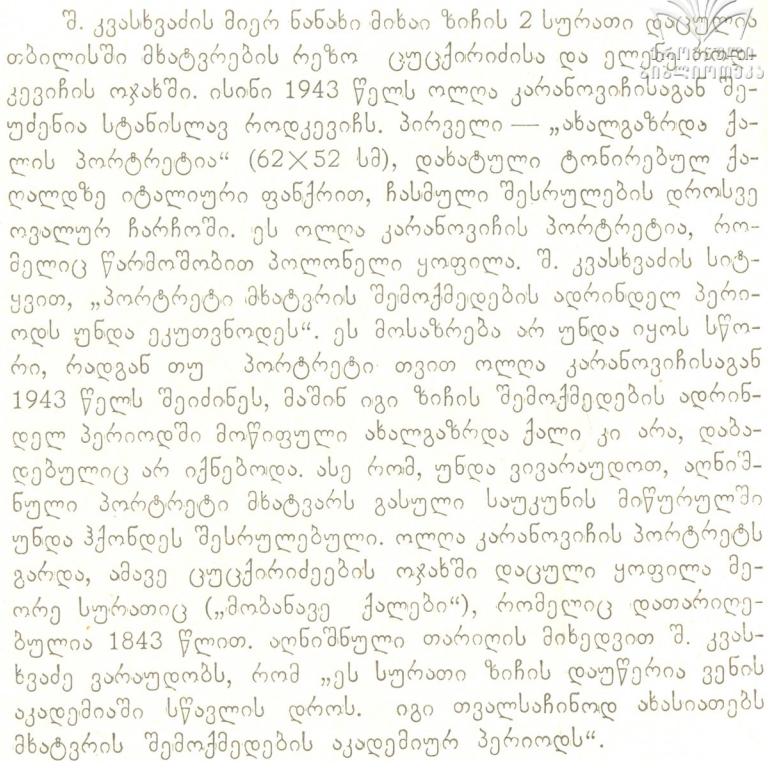 შ. კვასხვაძის მიერ ნანახი მიხაი ზიჩის 2 სურათი დაცულია
თბილისში მხატვრების რეზო ცუცქირიძისა და ელენე როდ-
კევიჩის ოჯახში. ისინი 1943 წელს ოლღა კარანოვიჩისაგან შე-
უძენია სტანისლავ როდკევიჩს. პირველი — „ახალგაზრდა ქა-
ლის პორტრეტია“ (62×52 სმ), დახატული ტონირებულ ქა-
ღალდზე იტალიური ფანქრით, ჩასმული შესრულების დროსვე
ოვალურ ჩარჩოში. ეს ოლღა კარანოვიჩის პორტრეტია, რო-
მელიც წარმოშობით პოლონელი ყოფილა. შ. კვასხვაძის სიტ-
ყვით, „პორტრეტი მხატვრის შემოქმედების ადრინდელ პერი-
ოდს უნდა ეკუთვნოდეს“. ეს მოსაზრება არ უნდა იყოს სწო-
რი, რადგან თუ პორტრეტი თვით ოლღა კარანოვიჩისაგან
1943 წელს შეიძინეს, მაშინ იგი ზიჩის შემოქმედების ადრინ-
დელ პერიოდში მოწიფული ახალგაზრდა ქალი კი არა, დაბა-
დებულიც არ იქნებოდა. ასე რომ, უნდა ვივარაუდოთ, აღნიშ-
ნული პორტრეტი მხატვარს გასული საუკუნის მიწურულში
უნდა ჰქონდეს შესრულებული. ოლღა კარანოვიჩის პორტრეტს
გარდა, ამავე ცუცქირიძეების ოჯახში დაცული ყოფილა მე-
ორე სურათიც („მობანავე ქალები“), რომელიც დათარიღე-
ბულია 1843 წლით. აღნიშნული თარიღის მიხედვით შ. კვას-
ხვაძე ვარაუდობს, რომ „ეს სურათი ზიჩის დაუწერია ვენის
აკადემიაში სწავლის დროს. იგი თვალსაჩინოდ ახასიათებს
მხატვრის შემოქმედების აკადემიურ პერიოდს“.